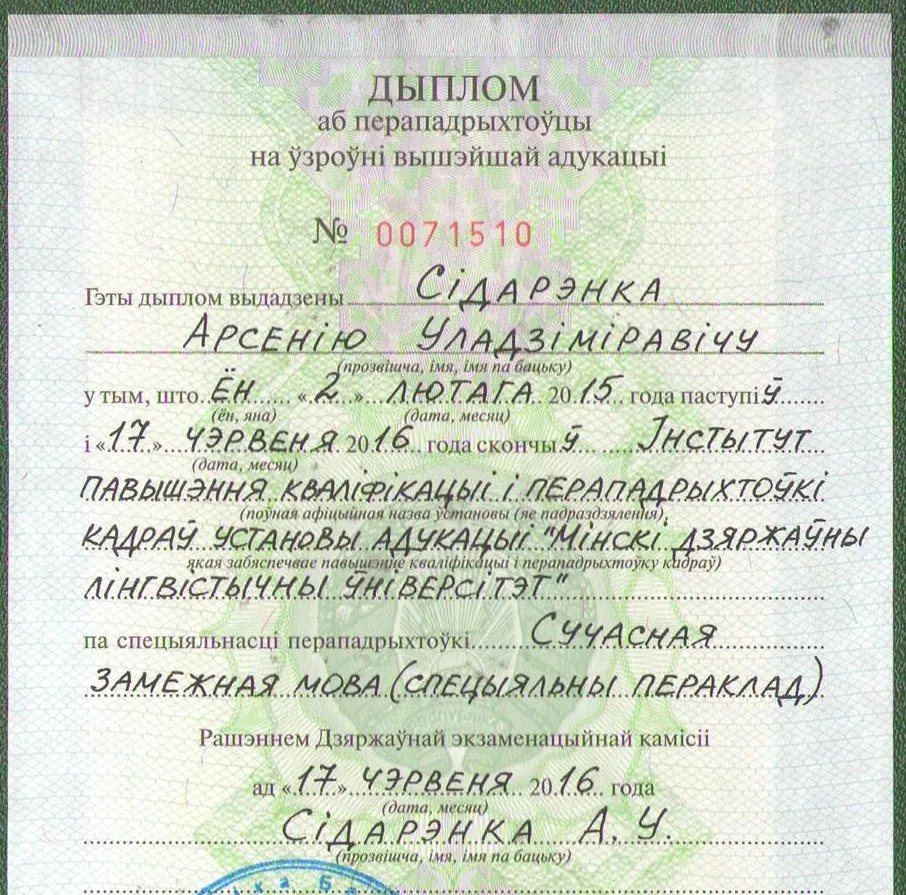 ДЫПЛОМ
аб перападрыхтоўцы
на ўзроўні вышэйшай адукацыі
№ 0071510
Гэты дыплом выдадзены Сідарэнка
Арсенію Уладзіміравічу
(прозвішча, імя, імя па бацьку)
у тым, што ён «2» лютага 2015 года паступіў
(ён, яна) (дата, месяц)
і «17» чэрвеня 2016 года скончыў Інстытут
(дата, месяц)
павышэння кваліфікацыі і перападрыхтоўкі
(поўная афіцыйная назва ўстановы (яе падраздзялення),
кадраў установы адукацыі "Мінскі дзяржаўны
якая забяспечвае павышэнне кваліфікацыі і перападрыхтоўку кадраў)
лінгвістычны ўніверсітэт"
па спецыяльнасці перападрыхтоўкі Сучасная
замежная мова (спецыяльны пераклад)
Рашэннем Дзяржаўнай экзаменацыйнай камісіі
ад «17» чэрвеня 2016 года
(дата, месяц)
Сідарэнка А. У.
(прозвішча, імя, імя па бацьку)